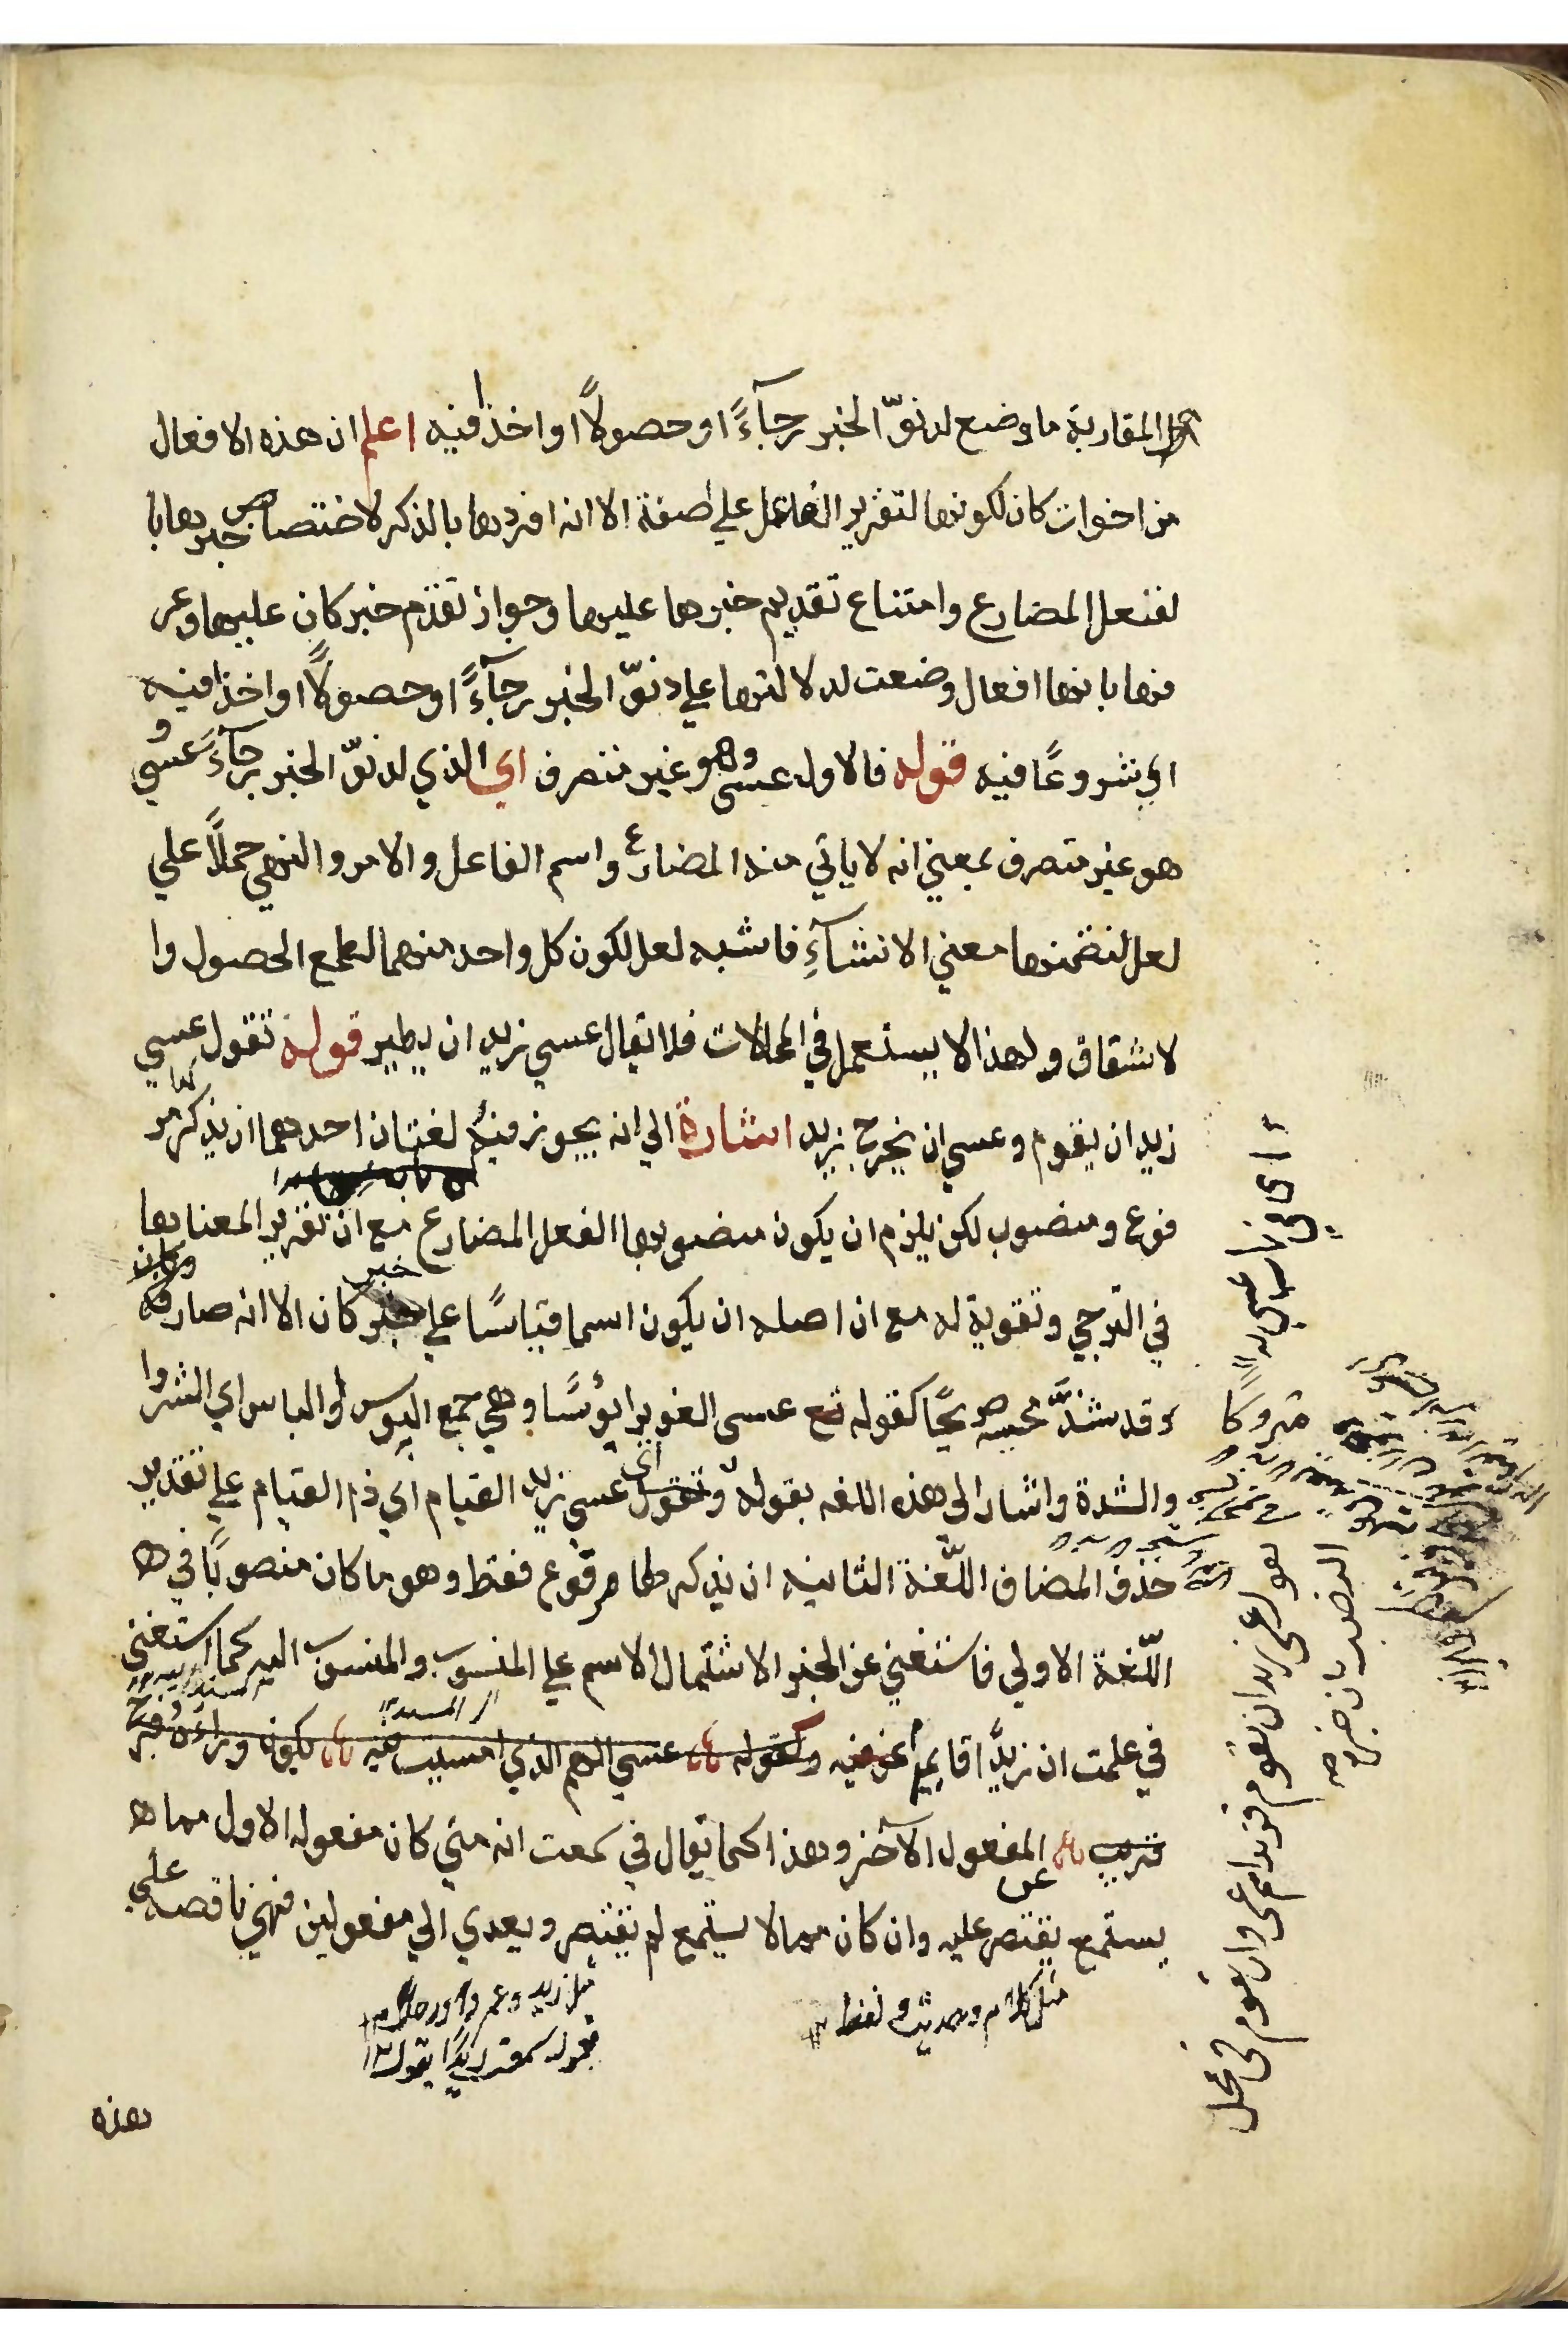 المقاربة ما وضع لدنوّ الخبر رجآءً او حصولاً او اخذا فيه اعلم ان هذه الافعال
من اخوات كان لكونها لتقرير الفاعل علي صفة الا انه افردها بالذكر لاختصاص خبرها با
لفعل المضارع وامتناع تقديم خبرها عليها وجواز تقدم خبر كان عليها وعر
فها بانها افعال وضعت لدلالتها علي دنوّ الخبر رجآءً او حصولاً او اخذا فيه
اي شروعًا فيه قوله فالاول عسى وهو غير متصرف اي الذي لدنوّ الخبر رجآءً عسي و
هو غير متصرف بمعني انه لا ياتي منه المضارع واسم الفاعل والامر والنهي حملاً علي
لعل لتضمنها معني الانشآءِ فاشبه لعل لكون كل واحد منهما لطمع الحصول وا
لاشقاق ولهذا لا يستعمل في المحالات فلا يقال عسي زيد ان يطير قوله تقول عسي
زيد ان يقوم وعسي ان يخرج زيد اشارة الي انه يجوز فيه لغتان احدهما ان يذكر لها مر
فوع ومنصوب لكن يلزم ان يكون منصوبها الفعل المضارع مع ان تقرير المعناها
في الترجي وتقوية له مع ان اصله ان يكون اسما قياسًا علي خبر كان الا انه صار
وقد شذّ مجيئه صريحًا كقوله عسى الغوير ابؤسًا وهي جمع البوس والباس اي الشر وا
والشدة واشار الى هذه اللغه بقوله وتقول عسي زيد القيام اي ذم القيام علي تقدير
حذف المضاف اللّغة الثانيه ان يذكر لها مرفوع فقط وهو ما كان منصوبًا في ه
اللّغة الاولي فاستغني عن الخبر الاشتمال الاسم علي المنسوب والمنسوب اليه كما استغني
في علمت ان زيدًا قايم عن فيه وكقوله عسي الهم الذي امسيت فيه يكون وراءه فرج
قريب المفعول الآخر وهذا كما يقال في سمعت انه متي كان مفعوله الاول مما ه
يستمع يقتصر عليه وان كان مما لا يستمع لم يقتصر ويعدي الي مفعولين فهي ناقصه علي
مثل كلام وحديث ولفظ
مثل زيد وعمر و ورجل
تقول سمعت زيدًا يقول
هذه
متروكا
تقول عسى زيد ان يقوم فزيد اسم عسى وان يقوم في محل
النصب بان خبره